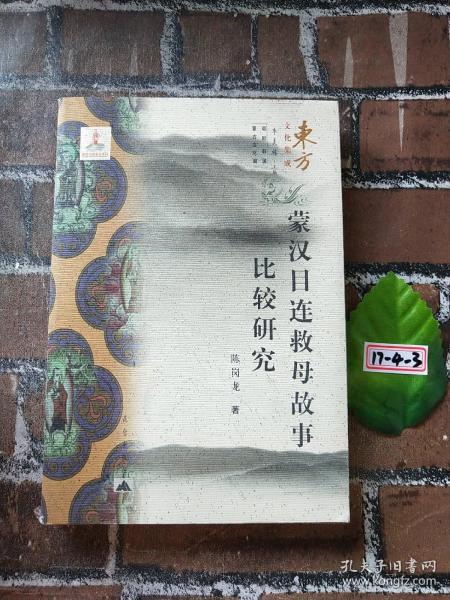 東方
文化集成
蒙汉目连救母故事
比较研究
陈岗龙 著
17-4-3
孔夫子旧书网
www.kongfz.com